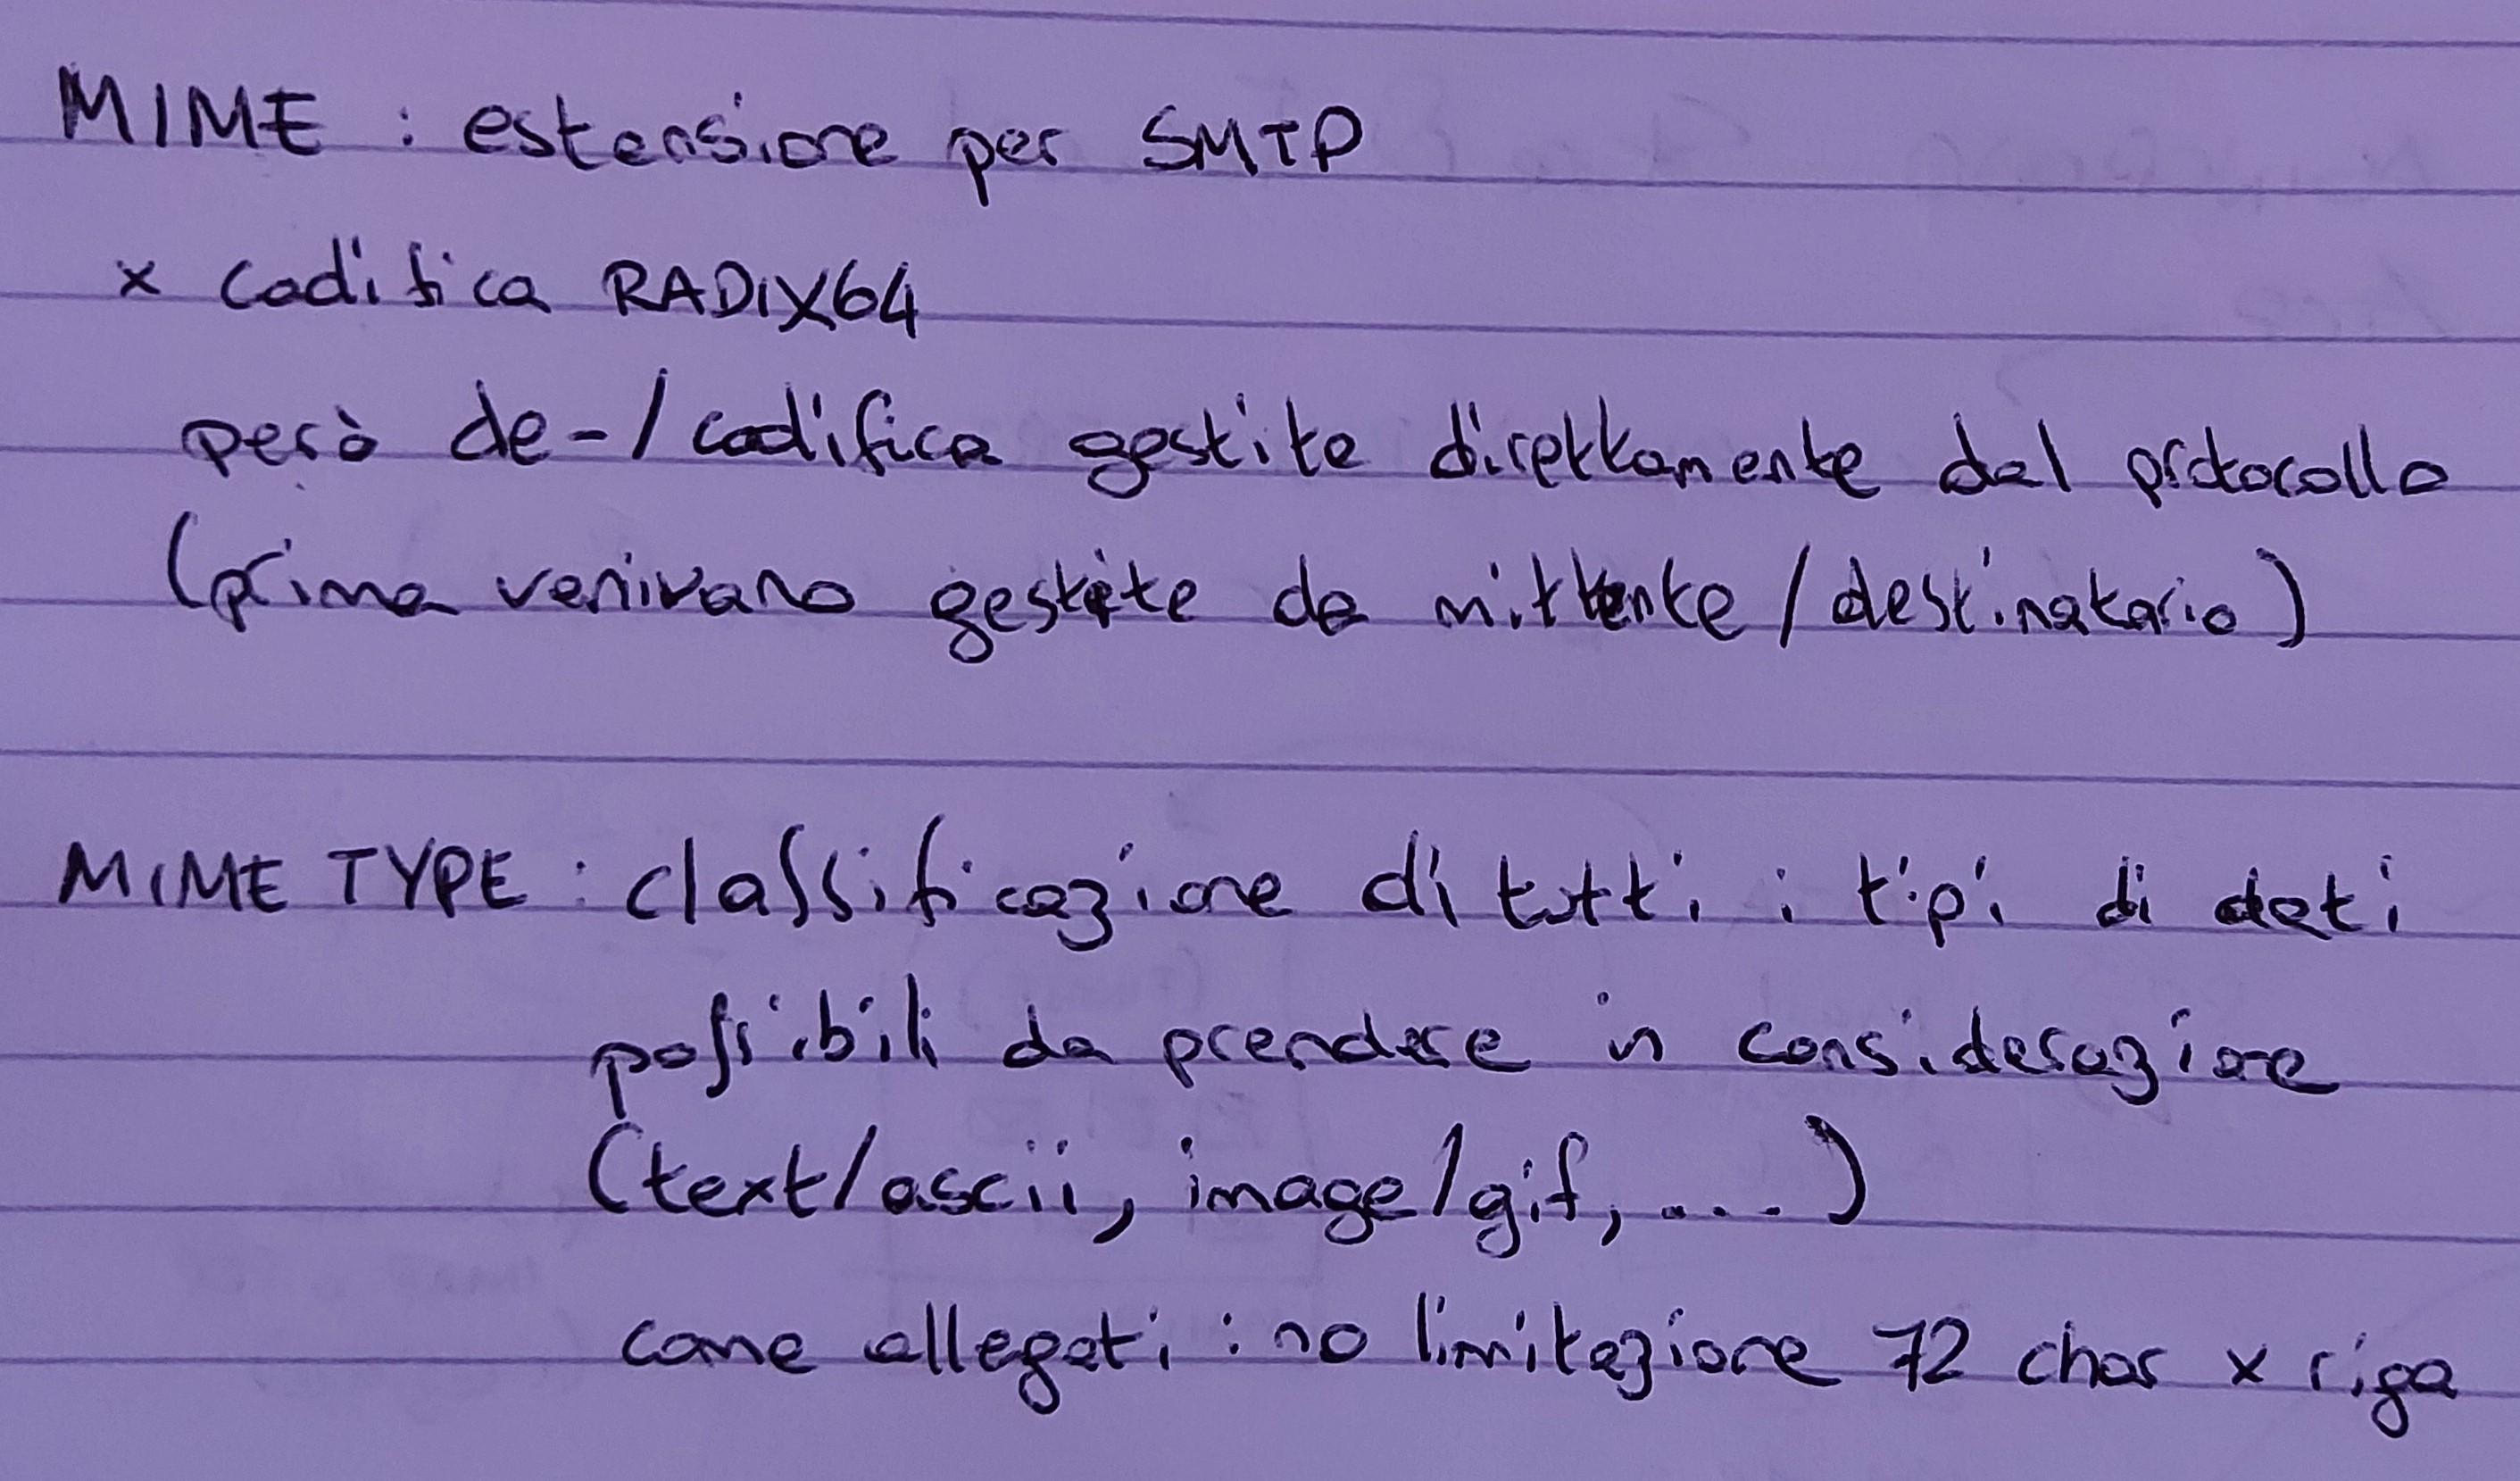 MIME : estensione per SMTP
x codifica RADIX64
però de-/codifica gestite direttamente dal protocollo
(prima venivano gestite da mittente/destinatario)
MIME TYPE : classificazione di tutti i tipi di dati
possibili da prendere in considerazione
(text/ascii, image/gif, ....)
come allegati : no limitazione 72 char x riga